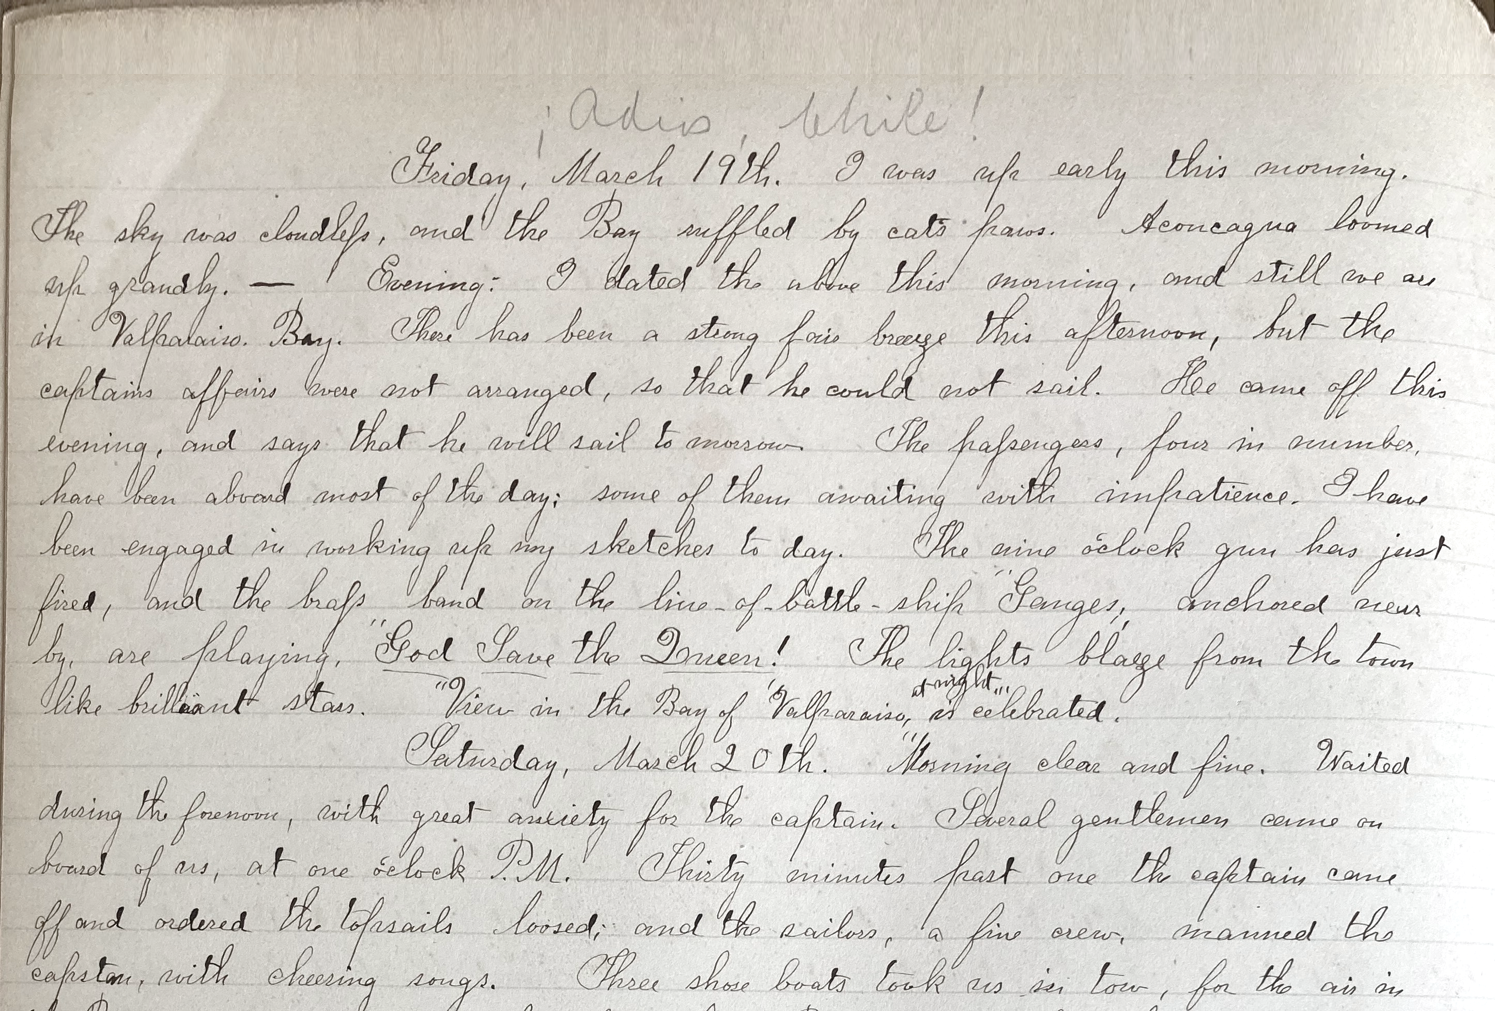 ¡Adios, Chile!
Friday, March 19th. I was up early this morning.
The sky was cloudless, and the Bay ruffled by cat's paws. Aconcagua loomed
up grandly. — Evening: I dated the above this morning, and still we are
in Valparaiso. Bay. There has been a strong fair breeze this afternoon, but the
captains affairs were not arranged, so that he could not sail. He came off this
evening, and says that he will sail to morrow. The passengers, four in number,
have been aboard most of the day; some of them awaiting with impatience. I have
been engaged in working up my sketches to day. The nine o'clock gun has just
fired, and the brass band on the line-of-battle-ship "Ganges," anchored near
by, are playing, "God Save the Queen! The lights blaze from the town
like brilliant stars. "View in the Bay of Valparaiso, at night," is celebrated.
Saturday, March 20th. Morning clear and fine. Waited
during the forenoon, with great anxiety for the captain. Several gentlemen came on
board of us, at one o'clock P.M. Thirty minutes past one the captain came
off and ordered the topsails loosed; and the sailors, a fine crew, manned the
capstan, with cheering songs. Three shore boats took us in tow, for the air in